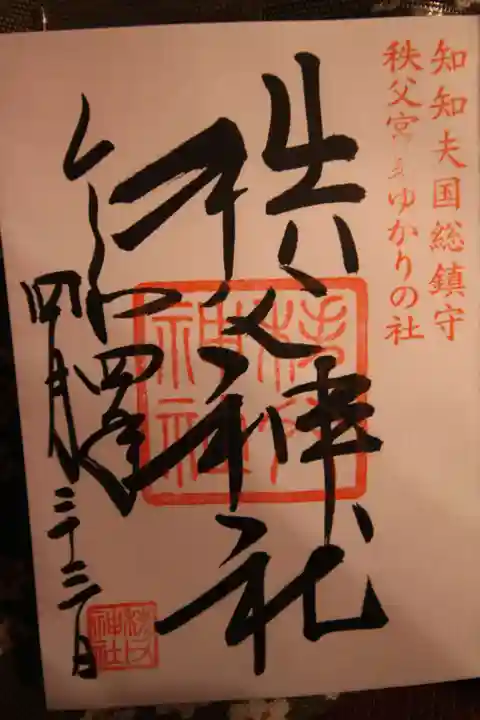 知知夫国総鎮守
秩父宮家ゆかりの社
秩父神社
秩父神社
令和四年
四月二十三日
秩父
神社